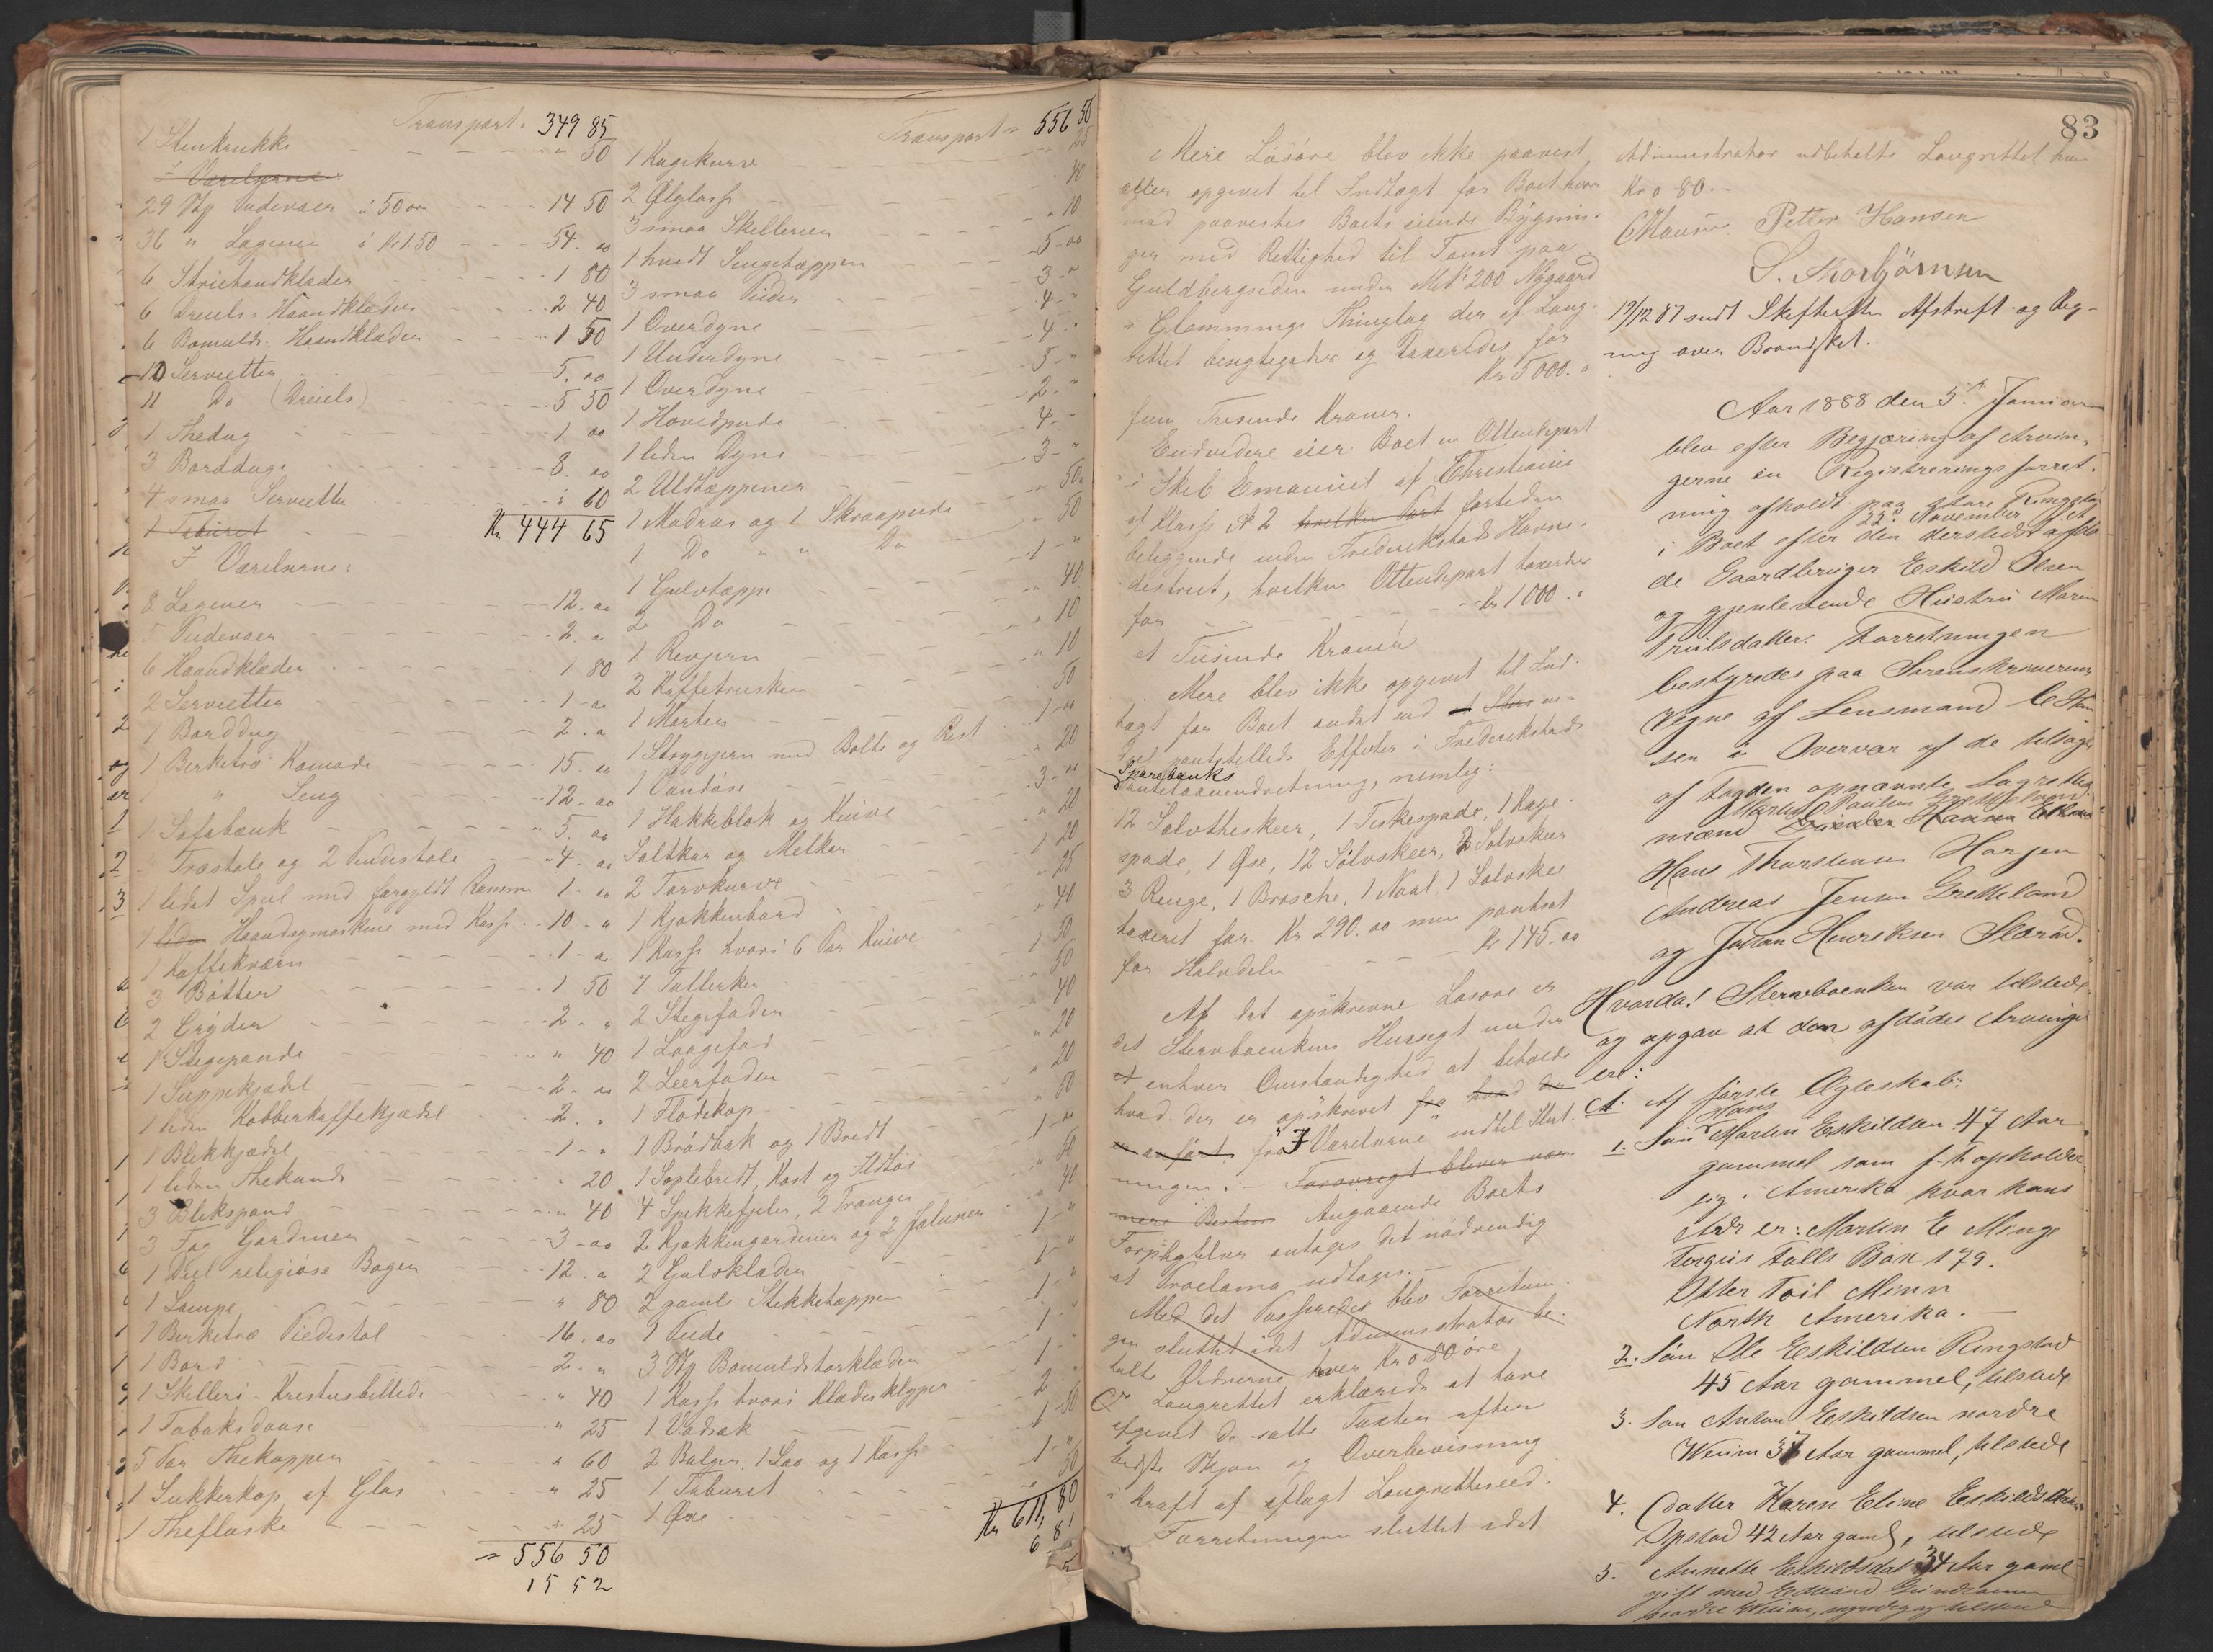 Transport 349 85
1 Stenkrukke - - - " 50
I Værelserne:
29 Stk Pudevaer à 50 øre - 14 50
36 " Lagener à Kr 1.50 - 54. oo
6 Striehandklæder - 1 80
6 Dreiels Haandklæder - 2 40
6 Bomulds Haandklæder - 1 50
10 Servietter - 5. oo
11 Do (Dreiels) - 5 50
1 Thedug - 1 oo
3 Bordduge - 8. oo
4 smaa Servietter - " 60
1 Taburet Kr 444 65
I Værelserne:
8 Lagener - 12. oo
5 Pudevaer - 2. "
6 Haandklæder - 1 80
2 Servietter - 1 - oo
1 Borddug - 2. "
1 Berketræ Komode - 15. oo
1 " Seng - 12. oo
1 Sofabænk - 5. oo
Træstole og 2 Pindestole - 4 - oo
1 lidet Speil med forgyldt Ramme 1 - oo
1 liden Haandsymaskine med Kasse - 10 - "
1 Kaffekværn - 1 - "
3 Bøtter - 1 50
2 Gryder - 2 - "
1 Stegepande - " 40
1 Suppekjedel - 2. oo
1 liden Kobberkaffekjedel - 2. "
1 Blekkjedel - 1 - "
1 liden Thekande - " 20
3 Blekspand - " 40
3 Fag Gardiner - 3 - oo
1 Deel religiøse Bøger - 12. "
1 Lampe - " 80
1 Berketræ Piedestal - 16. oo
1 Bord - 2. "
1 Skilleri - Kristusbillede - " 40
1 Tobaksdaase - " 25
5 Par Thekopper - " 60
1 Sukkerkop af Glas - " 25
1 Theflaske - " 25
556 50
15 52
Transport 556 50
1 Kagekurv - " 25
2 Ølglass - " 40
3 smaa Skellerier - " 10
1 hvidt Sengetæppe - 5 - oo
3 smaa Puder - 3 - "
1 Overdyne - 4 - "
1 Underdyne - 4 - "
1 Overdyne - 5 - "
1 Hovedpude - 2 - "
1 liden Dyne - 4 - "
2 Uldtæppener - 3 - "
1 Madras og 1 Skraapude - " 50
1 Do " " Do - " 50
1 Gulvtæppe - 1 - "
2 Do - " 40
1 Revjern - " 10
2 Kaffetrusker - " 10
1 Morter - " 50
1 Strygejern med Bolte og Rist 1 - oo
1 Vandøse - " 20
1 Hakkeblok og Knive - 3 - oo
Saltkar og Melkar - " 20
2 Torvkurve - 1 20
1 Kjøkkenbord - " 25
1 Kasse hvori 6 Par Knive - " 40
7 Tallerker - " 50
2 Stegefader - 1 50
1 Laagefad - " 40
2 Leerfader - " 20
1 Flødekop - " 20
1 Brødbak og 1 Bredt - " 50
1 Soplebredt, Kost og Ildtøi - 1 - oo
4 Spekkefjeler, 2 Trauger - " 60
2 Kjøkkengardiner og 2 Jalusier - " 40
2 Gulvklæder - 1 - "
2 gamle Stikketæpper - 1 - "
1 Pude - 1 - "
3 Stk Bomuldstørklæder - 1 - "
1 Kasse hvori Klædesklyper - 1 - "
1 Vadsæk - 2 - "
2 Balger, 1 Saa og 1 Kasse - 1 50
1 Taburet - 1 - "
1 Øxe - " 50
Kr 611, 80
6 81
Mere Løsøre blev ikke paavist
eller opgivet til Indtægt for Boet hvor
mod paavistes Boets eiende Bygnin-
ger med Rettighed til Tomt paa
Guldbergseden under Mt. No 200 Nygaard
i Glemminge Thinglag der af Laug-
rettet besigtigedes og taxeredes for
Kr 5000. "
fem Tusende Kroner.
Endvidere eier Boet en Ottendepart
i Skib Emanuel af Christiania
af Klasse A 2 hvilken Part fortiden
beliggende under Frederikstads Havne-
distrikt, hvilken Ottendepart taxeredes
for - - - Kr 1000. "
et Tusinde Kroner
Mere blev ikke opgivet til Ind-
tægt for Boet andet end en
Del pantstillede Effekter i Frederikstads
Sparebanks
Pantelaanindretning, nemlig:
12 Sølvtheskeer, 1 Fiskespade, 1 Kage-
spade, 1 Øse, 12 Sølvskeer, 2 Sølvskeer
3 Ringe, 1 Brosche, 1 Naal 1 Sølvskee
taxeret for Kr 290. oo men pantsat
for Halvdelen - - - Kr 145. oo
Af det opskrevne Løsøre er
det Stervboenkens Hensigt under
enhver Omstændighed at beholde
hvad der er opskrevet fra hvad der
er anført fra "I Værelserne" indtil Slut-
ningen. - Forøvrigt bliver
Angaaende Boets
Forpligtelser antages det nødvendig
at Proclama udtages. -
Med det Passerede blev Forretnin-
gen sluttet idet Administrator be-
talte Vidnerne hver Kr 0.80 øre
Laugrettet erklærede at have
afgivet de satte Taxter efter
bedste Skjøn og Overbevisning
i Kraft af aflagt Laugretteseed.
Forretningen sluttet idet
83
Administrator udbetalte Laugrettet hver
Kr 0 80.
Petter Hansen
S. Korbjørnsen
19/12 87 sendt Skifteretten Afskrift og Reg-
ning over Brandskat.
Aar 1888 den 5te Januar
blev efter Begjæring af Arvin-
gerne en Registreringsforret-
ning afholdt paa store Ringstad
22de November f. A.
i Boet efter den dersteds afdø
de Gaardbruger Eskild Olsen
og gjenlevende Hustru Maren
Trulsdatter. Forretningen
bestyredes paa Sorenskriverens
Vegne af Lensmand C Han
sen i Overvær af de tilsagte
af Fogden opnævnte Lagrettes
mænd
Hans Thorstensen Harjen
Andreas Jensen Gretteland
og Johan Henriksen Slærød.
Hvorda! Stervboenken var tilstede
og opgav at den afdødes Arvinger
ere:
A. Af første Ægteskab:
1. Søn Hans Martin Eskildsen 47 Aar
gammel som f. T. opholder
sig i Amerika hvor hans
Adr er: Martin E Minge
Fergus Falls Box 179.
Otter Tail Minn
North Amerika. -
2. Søn Ole Eskildsen Ringstad
45 Aar gammel, tilstede
3. Søn Anton Eskildsen nordre
Weum 37 Aar gammel, tilstede
4. Datter Karen Eline Eskildsdatter
Opstad 42 Aar gaml, tilstede
5. Annette Eskildsdat 34 Aar gaml
gift med Edvard
nordre Weum, myndig og tilstede